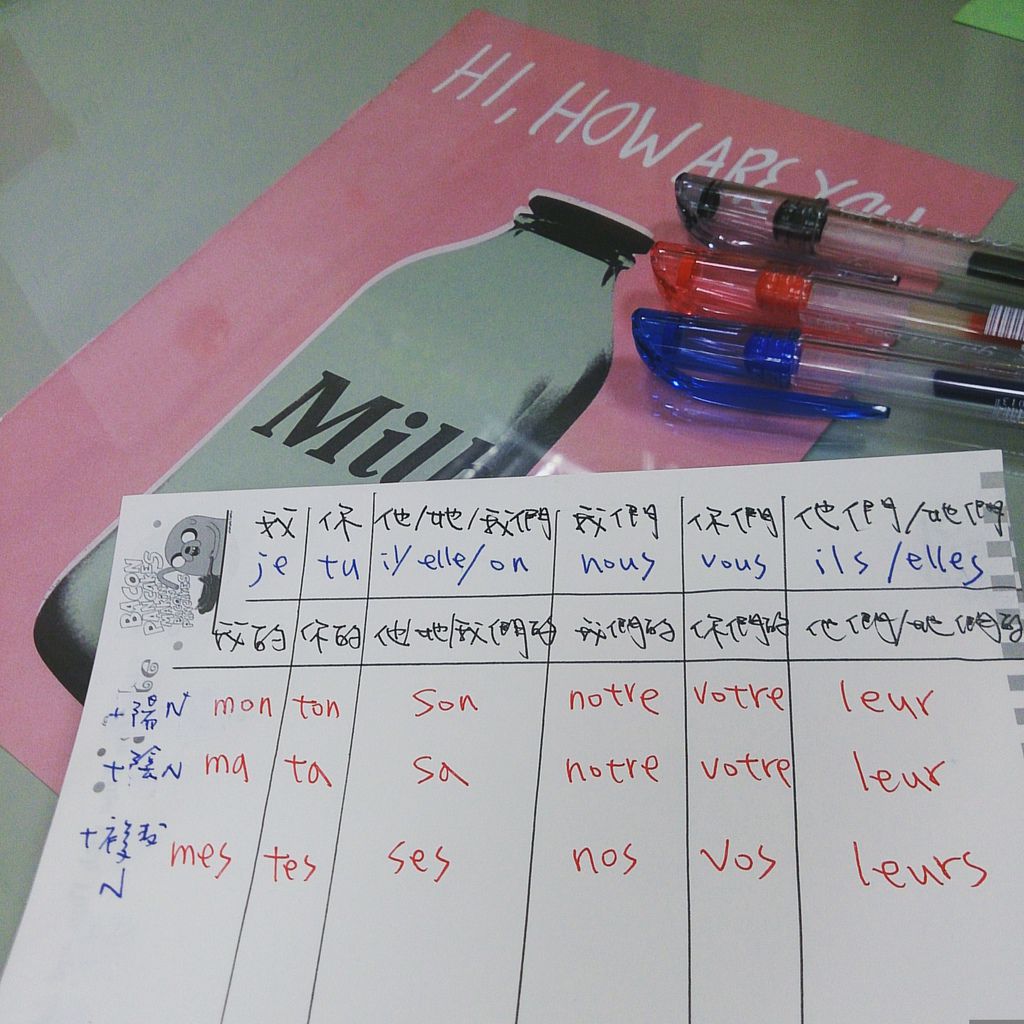 HI, HOW ARE YOU
Milk
BACON
PANCAKES
我 你 他/她/我們 我們 你們 他們/她們
je tu il/elle/on nous vous ils/elles
我的 你的 他/她/我們的 我們的 你們的 他們/她們的
+陽N mon ton son notre votre leur
+陰N ma ta sa notre votre leur
+複數 mes tes ses nos vos leurs
N